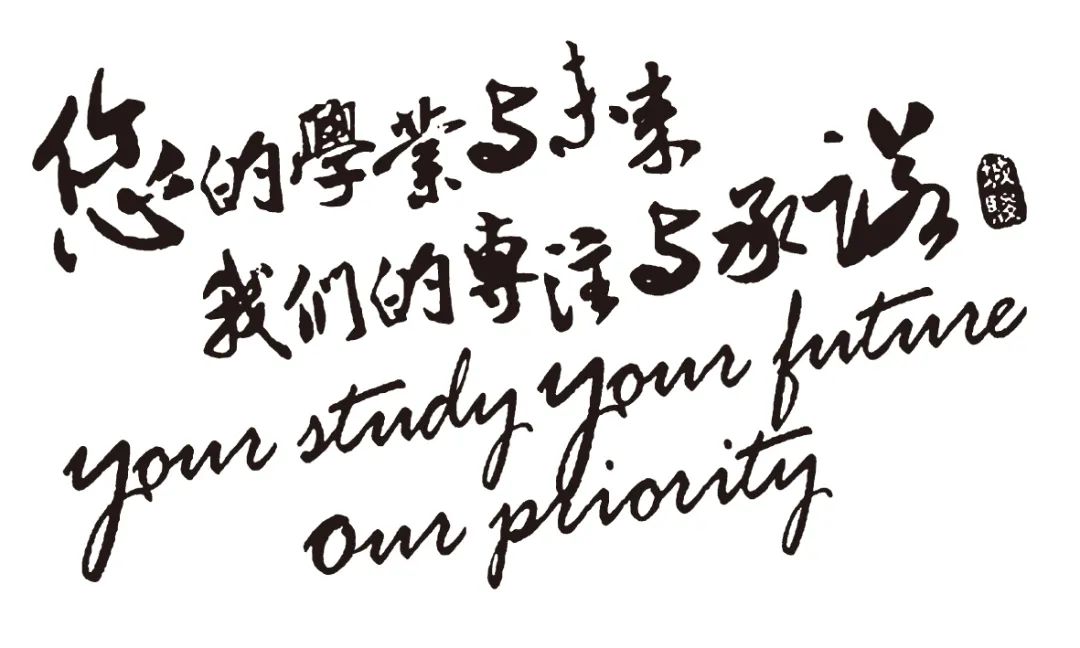 您的學業与未来
我们的專注与承诺
城駿
your study your future
our priority